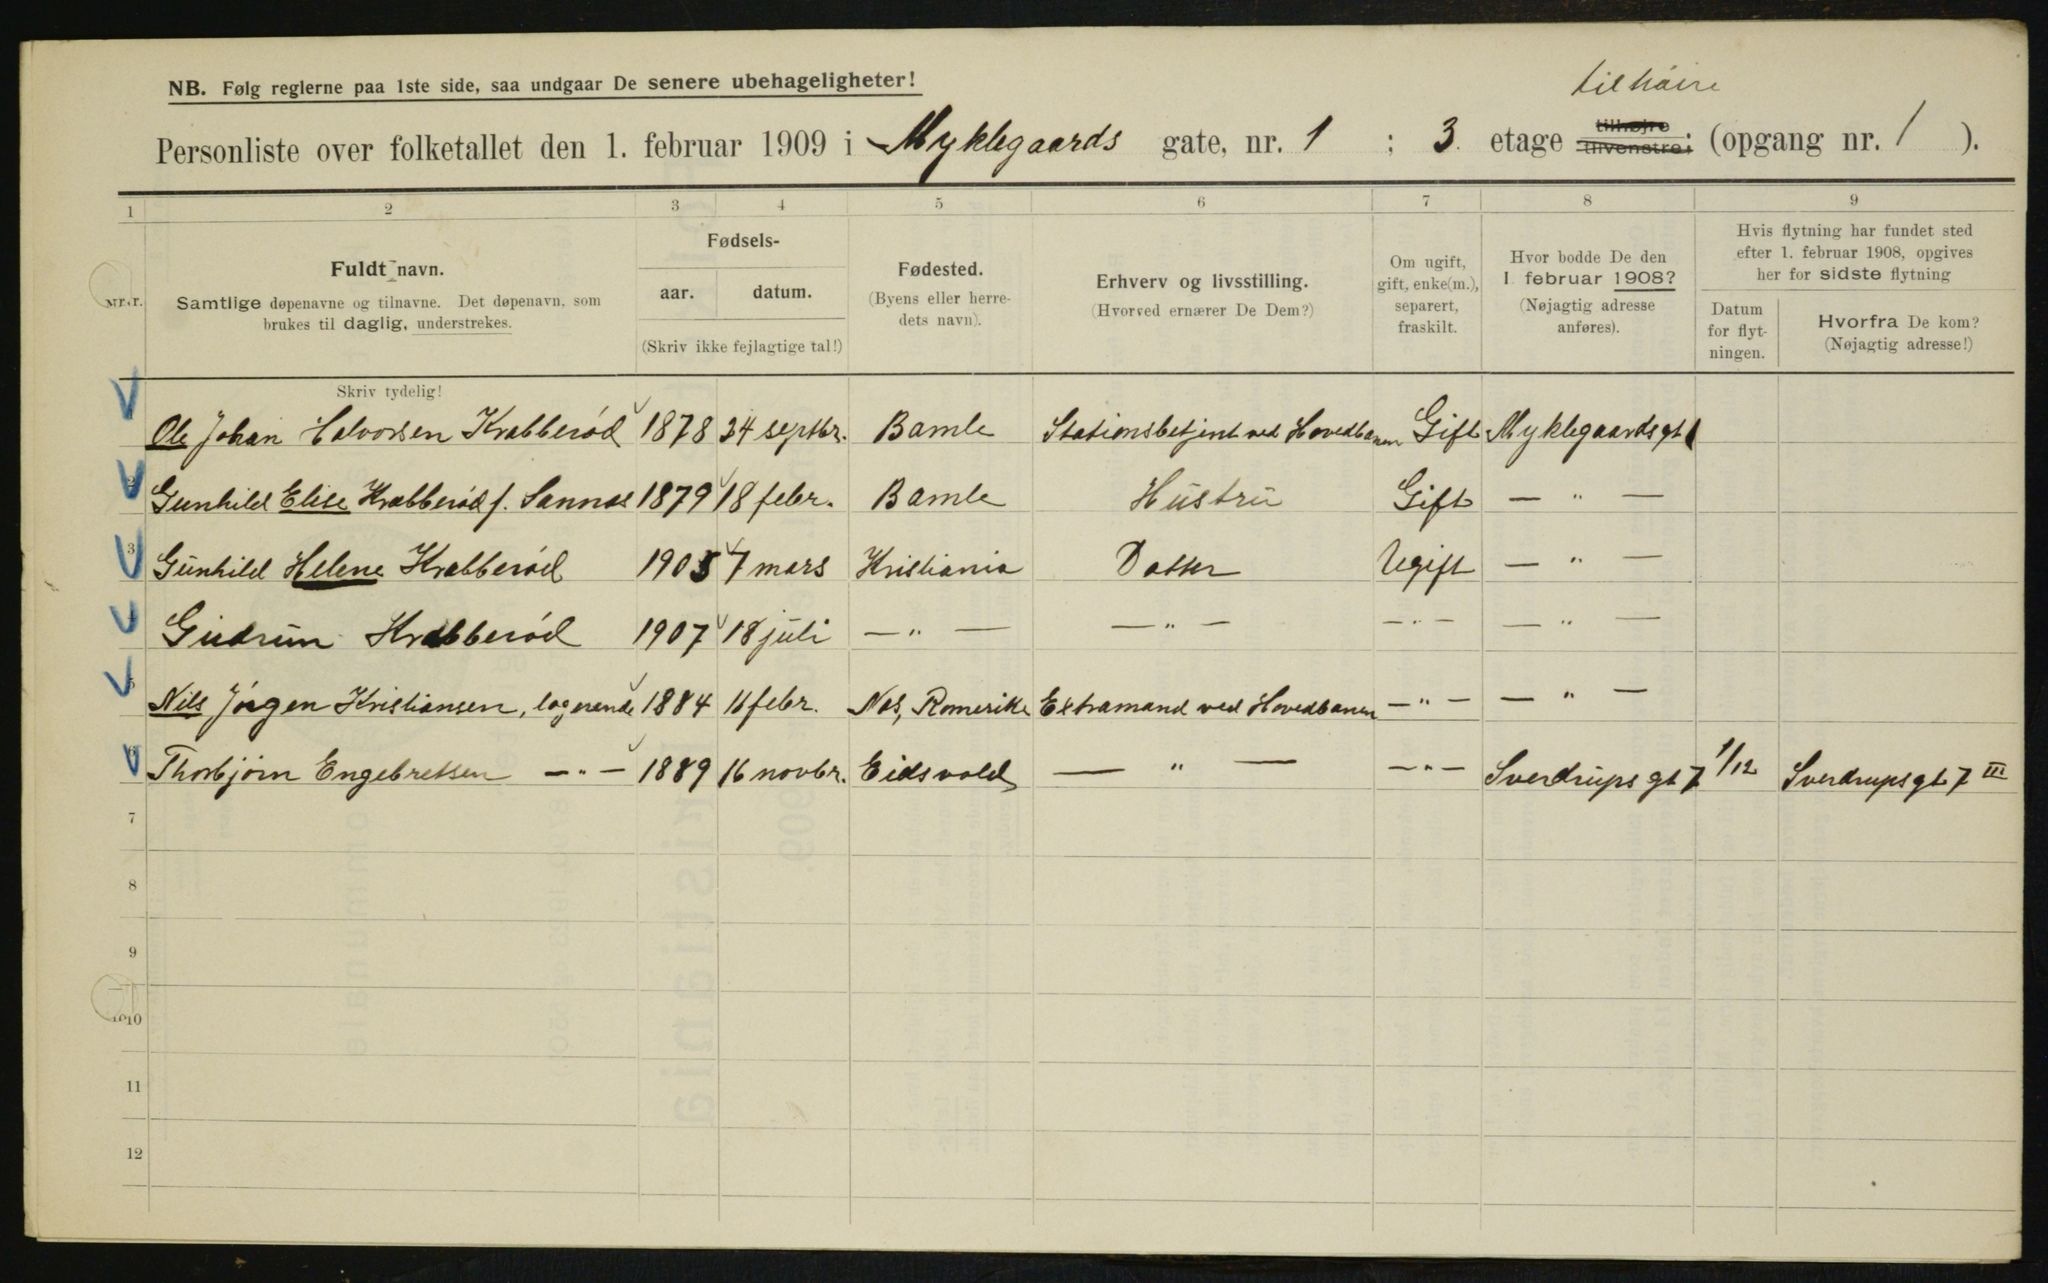 til høire
NB. Følg reglerne paa 1ste side, saa undgaar De senere ubehageligheter!
Personliste over folketallet den 1. februar 1909 i Myklegaards gate, nr. 1 ; 3. etage tilhøjre tilvenstre; (opgang nr. 1 ).
1 2 3 4 5 6 7 8 9
Fuldt navn.
Samtlige døpenavne og tilnavne. Det døpenavn, som
brukes til daglig, understrekes.
Fødsels-
aar. datum.
(Skriv ikke fejlagtige tal!)
Fødested.
(Byens eller herre-
dets navn).
Erhverv og livsstilling.
(Hvorved ernærer De Dem?)
Om ugift,
gift, enke(m.),
separert,
fraskilt.
Hvor bodde De den
1. februar 1908?
(Nøjagtig adresse
anføres).
Hvis flytning har fundet sted
efter 1. februar 1908, opgives
her for sidste flytning
Datum
for flyt-
ningen.
Hvorfra De kom?
(Nøjagtig adresse!)
Skriv tydelig!
Ole Johan Halvorsen Krabberød 1878 24 septbr. Bamle Stationsbetjent ved Hovedbanen Gift Myklegaardsgt 1
2 Gunhild Elise Krabberød f. Sannæs 1879 18 febr. Bamle Hustru Gift — " —
3 Gunhild Helene Krabberød 1905 7 mars Kristiania Datter Ugift — " —
4 Gudrun Krabberød 1907 18 juli — " — — " — — " — — " —
5 Nils Jørgen Kristiansen, logerende 1884 11 febr. Nes, Romerike Extramand ved Hovedbanen — " — — " —
6 Thorbjørn Engebretsen — " — 1889 16 novbr. Eidsvold — " — — " — Sverdrups gt 7 1/12 Sverdrupsgt 7 III
7
8
9
10
11
12